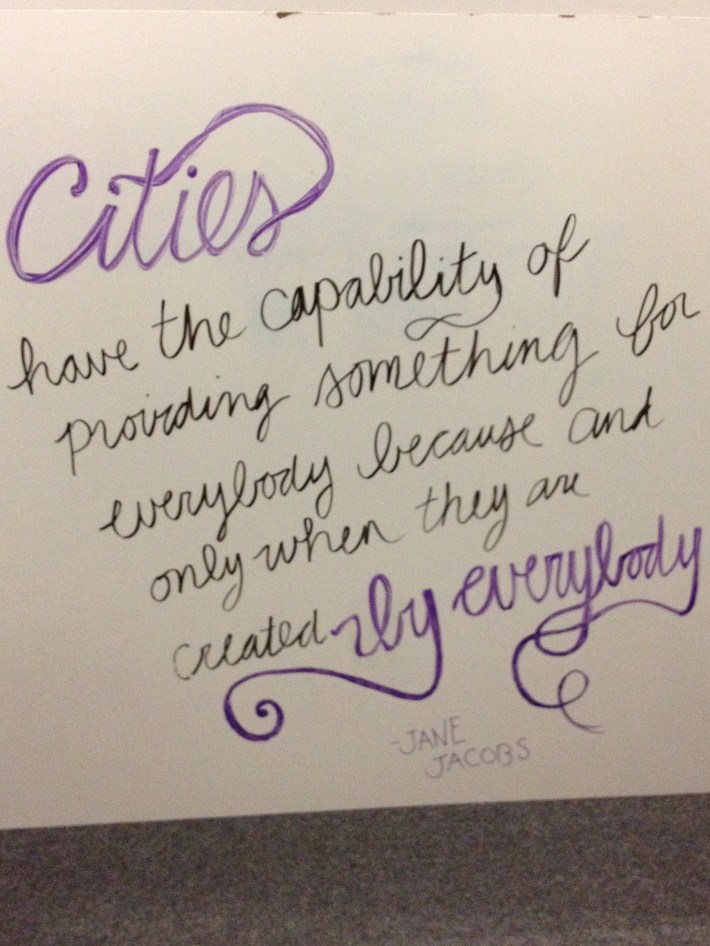 Cities
have the capability of
providing something for
everybody because and
only when they are
created by everybody
-JANE
JACOBS